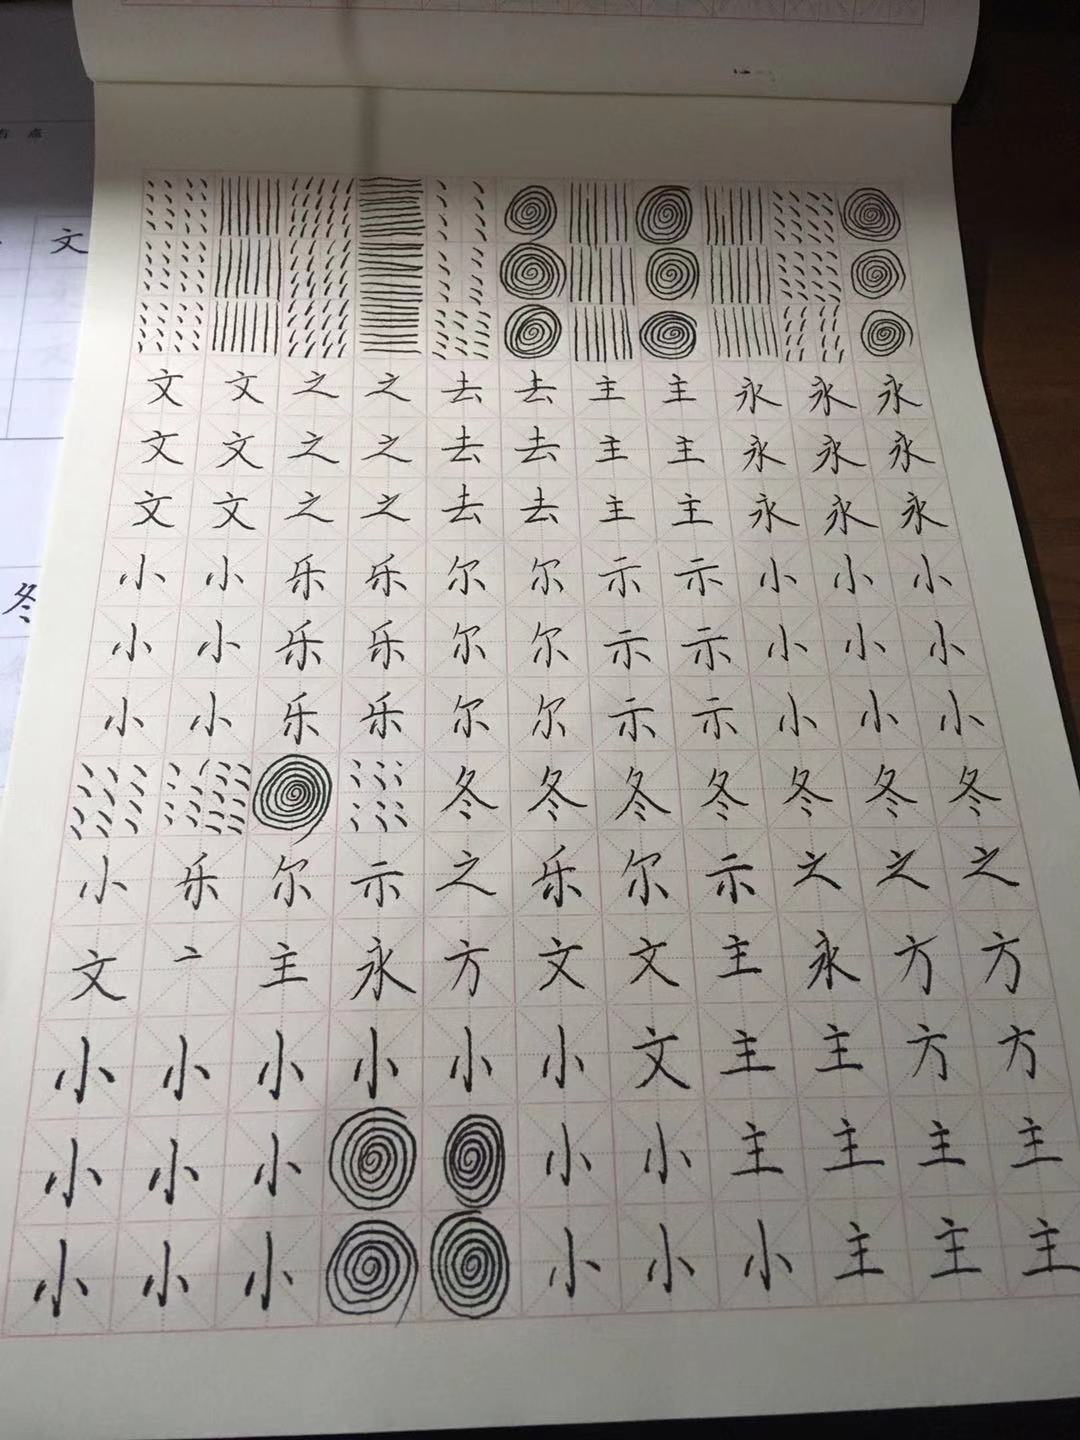 右 点
文
冬
文 文 之 之 去 去 主 主 永 永 永
文 文 之 之 去 去 主 主 永 永 永
文 文 之 之 去 去 主 主 永 永 永
小 小 乐 乐 尔 尔 示 示 小 小 小
小 小 乐 乐 尔 尔 示 示 小 小 小
小 小 乐 乐 尔 尔 示 示 小 小 小
冬 冬 冬 冬 冬 冬 冬
小 乐 尔 示 之 乐 尔 示 之 之 之
文 亠 主 永 方 文 文 主 永 方 方
小 小 小 小 小 小 文 主 主 方 方
小 小 小 小 小 主 主 主 主
小 小 小 小 小 小 主 主 主